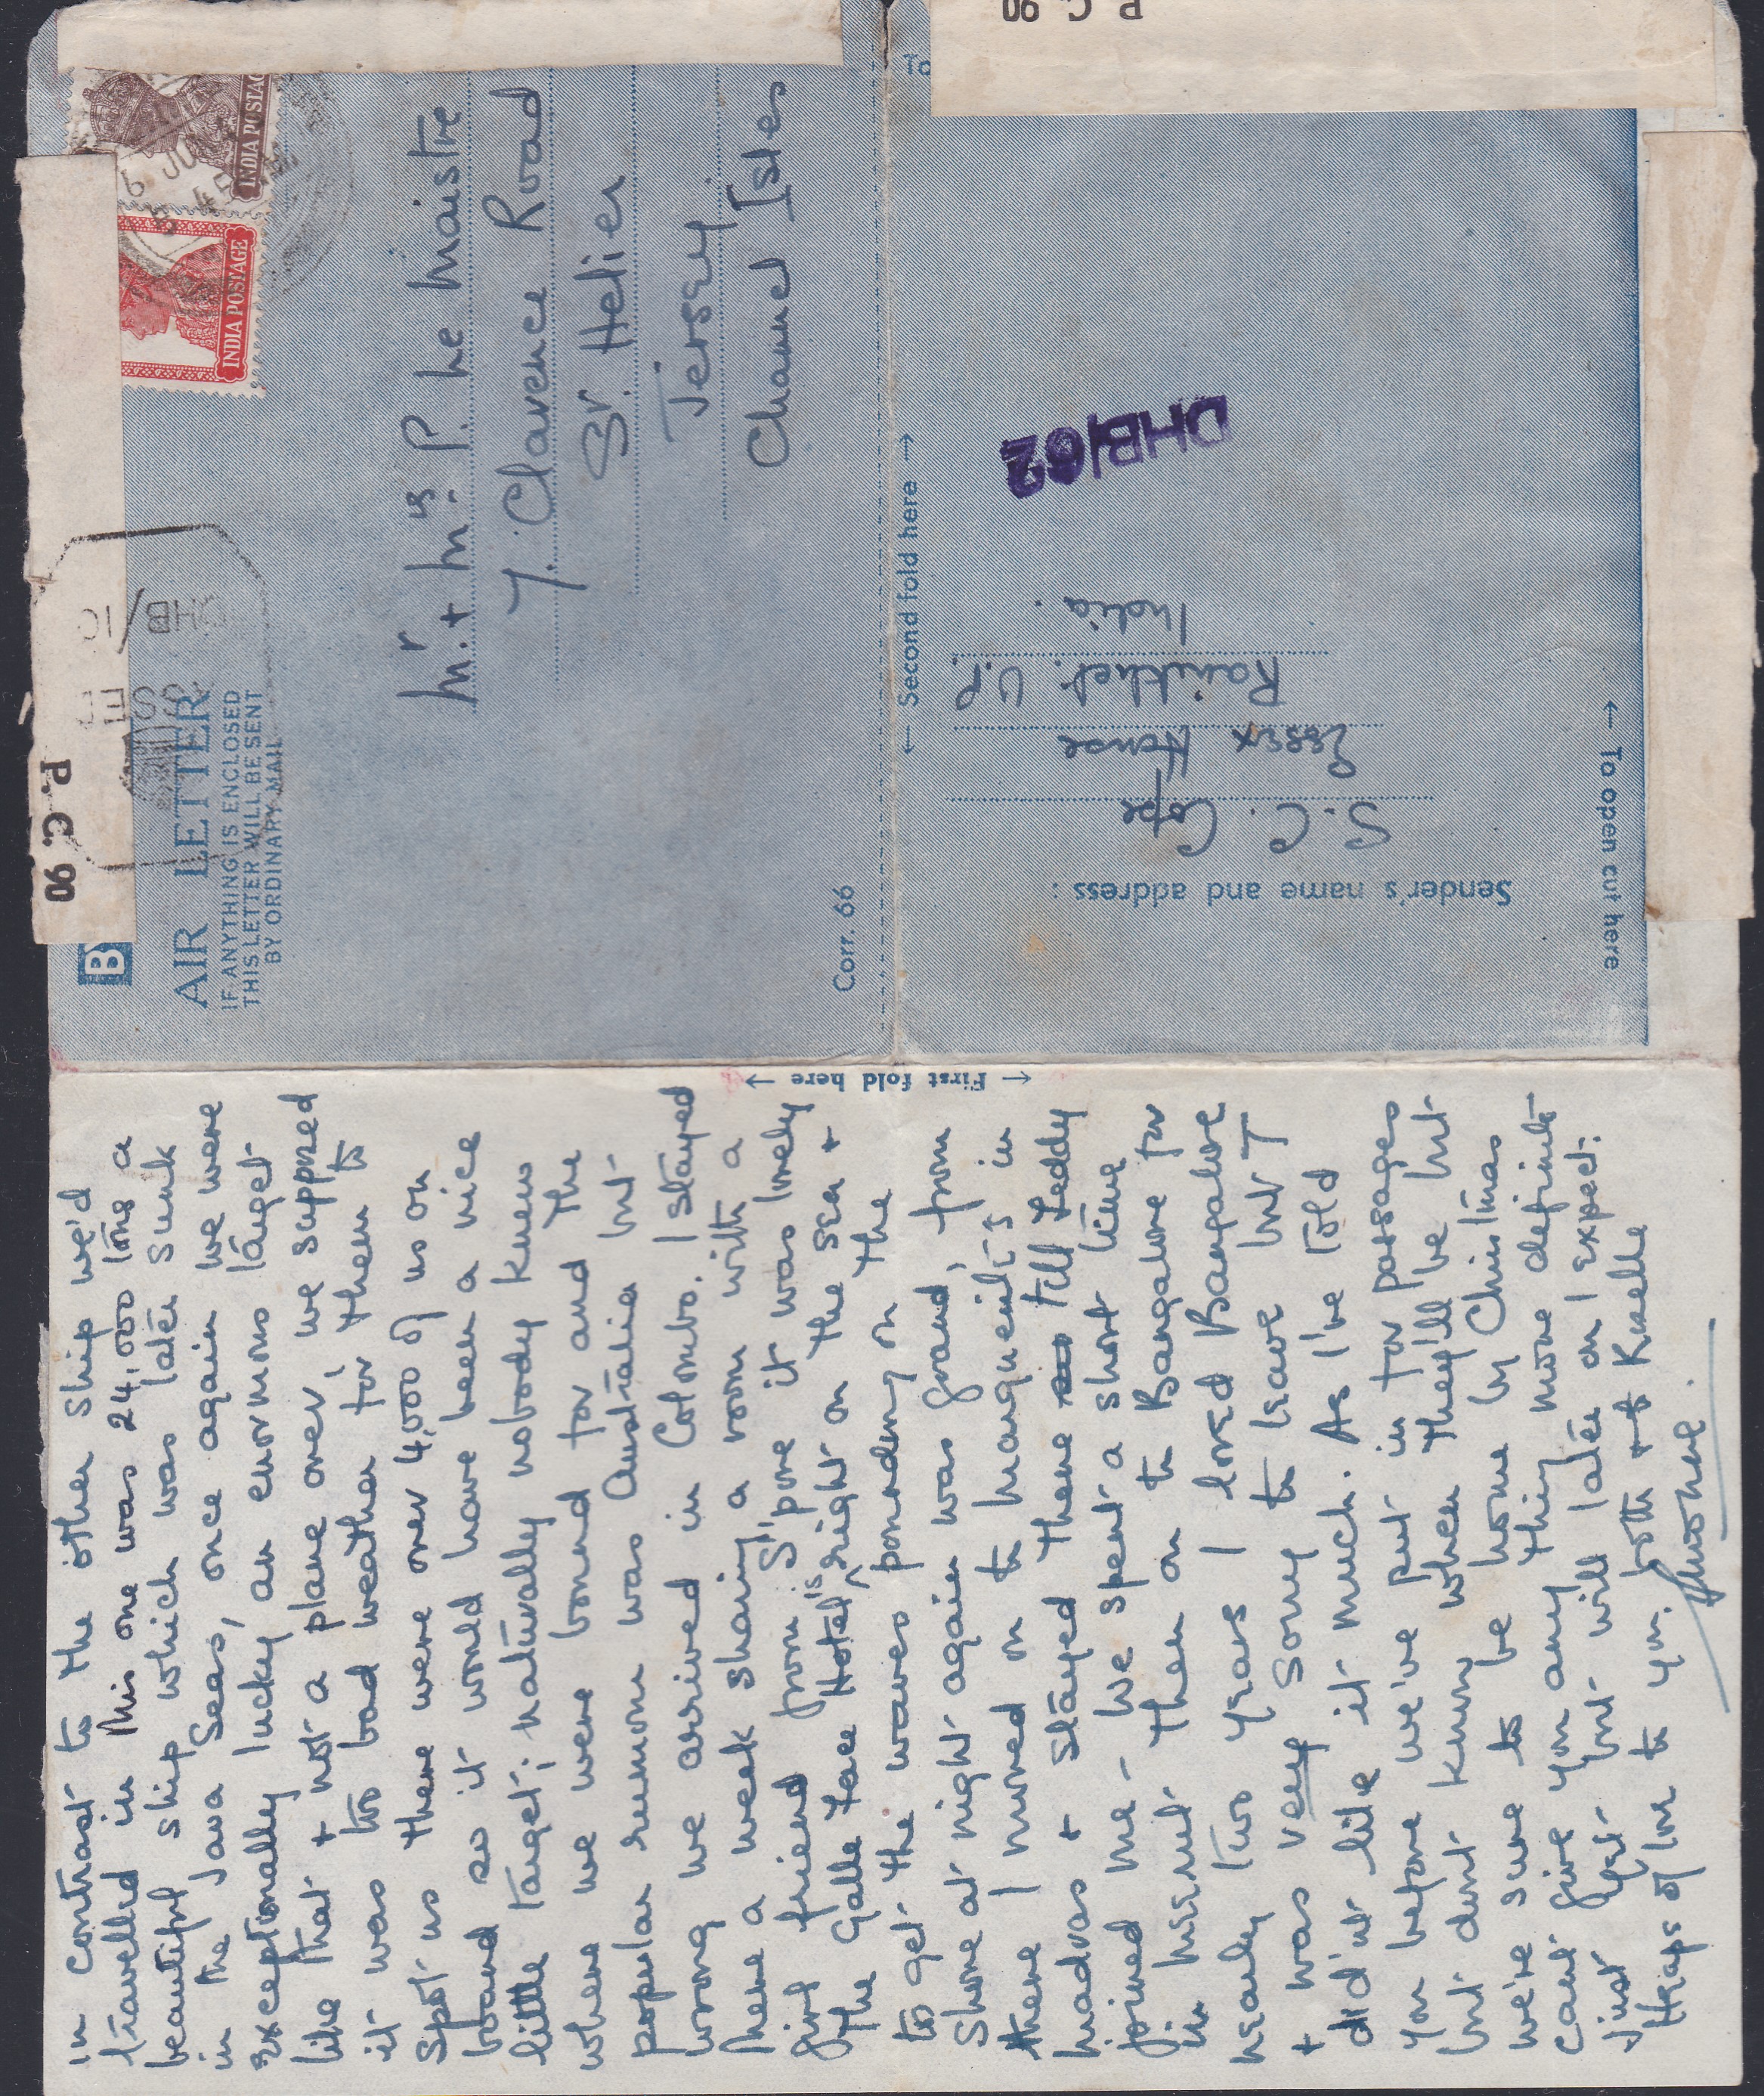 P. C. 90
BY
AIR LETTER
IF ANYTHING IS ENCLOSED
THIS LETTER WILL BE SENT
BY ORDINARY MAIL
DHB/
INDIA POSTAGE
INDIA POSTAG
6 JUN
45
Mr. + Mrs. P. Le Maistre
7. Clarence Road
St. Helier
Jersey
Channel Isles
Corr. 66
← Second fold here →
P. C. 90
To
DHB/62
Sender's name and address:
S. C. Cope
Essex House
Ranikhet. U.P.
India.
← To open cut here
← First fold here →
in contrast to the other ship we'd
travelled in this one was 24,000 tons a
beautiful ship which was later sunk
in the Java Seas, once again we were
exceptionally lucky, an enormous target
like that + not a plane over, we supposed
it was too bad weather for them to
spot us there were over 4,000 of us on
board so it would have been a nice
little target; naturally nobody knew
where we were bound for and the
popular rumour was Australia but
wrong we arrived in Colombo. I stayed
there a week sharing a room with a
girl friend from S'pore it was lovely
the Galle Face Hotel is right on the sea +
to get the waves pounding on the
shore at night again was grand, from
there I moved on to in
Madras + stayed there till Teddy
joined me - we spent a short time
in then on to Bangalore for
nearly two years I loved Bangalore
+ was very sorry to leave but T
did'nt like it much. As I've told
you before we've put in for passages
but dont know when they'll be but
we're sure to be home by Christmas
cant give you any thing more definite
just yet but will later on I expect.
Heaps of love to you both +